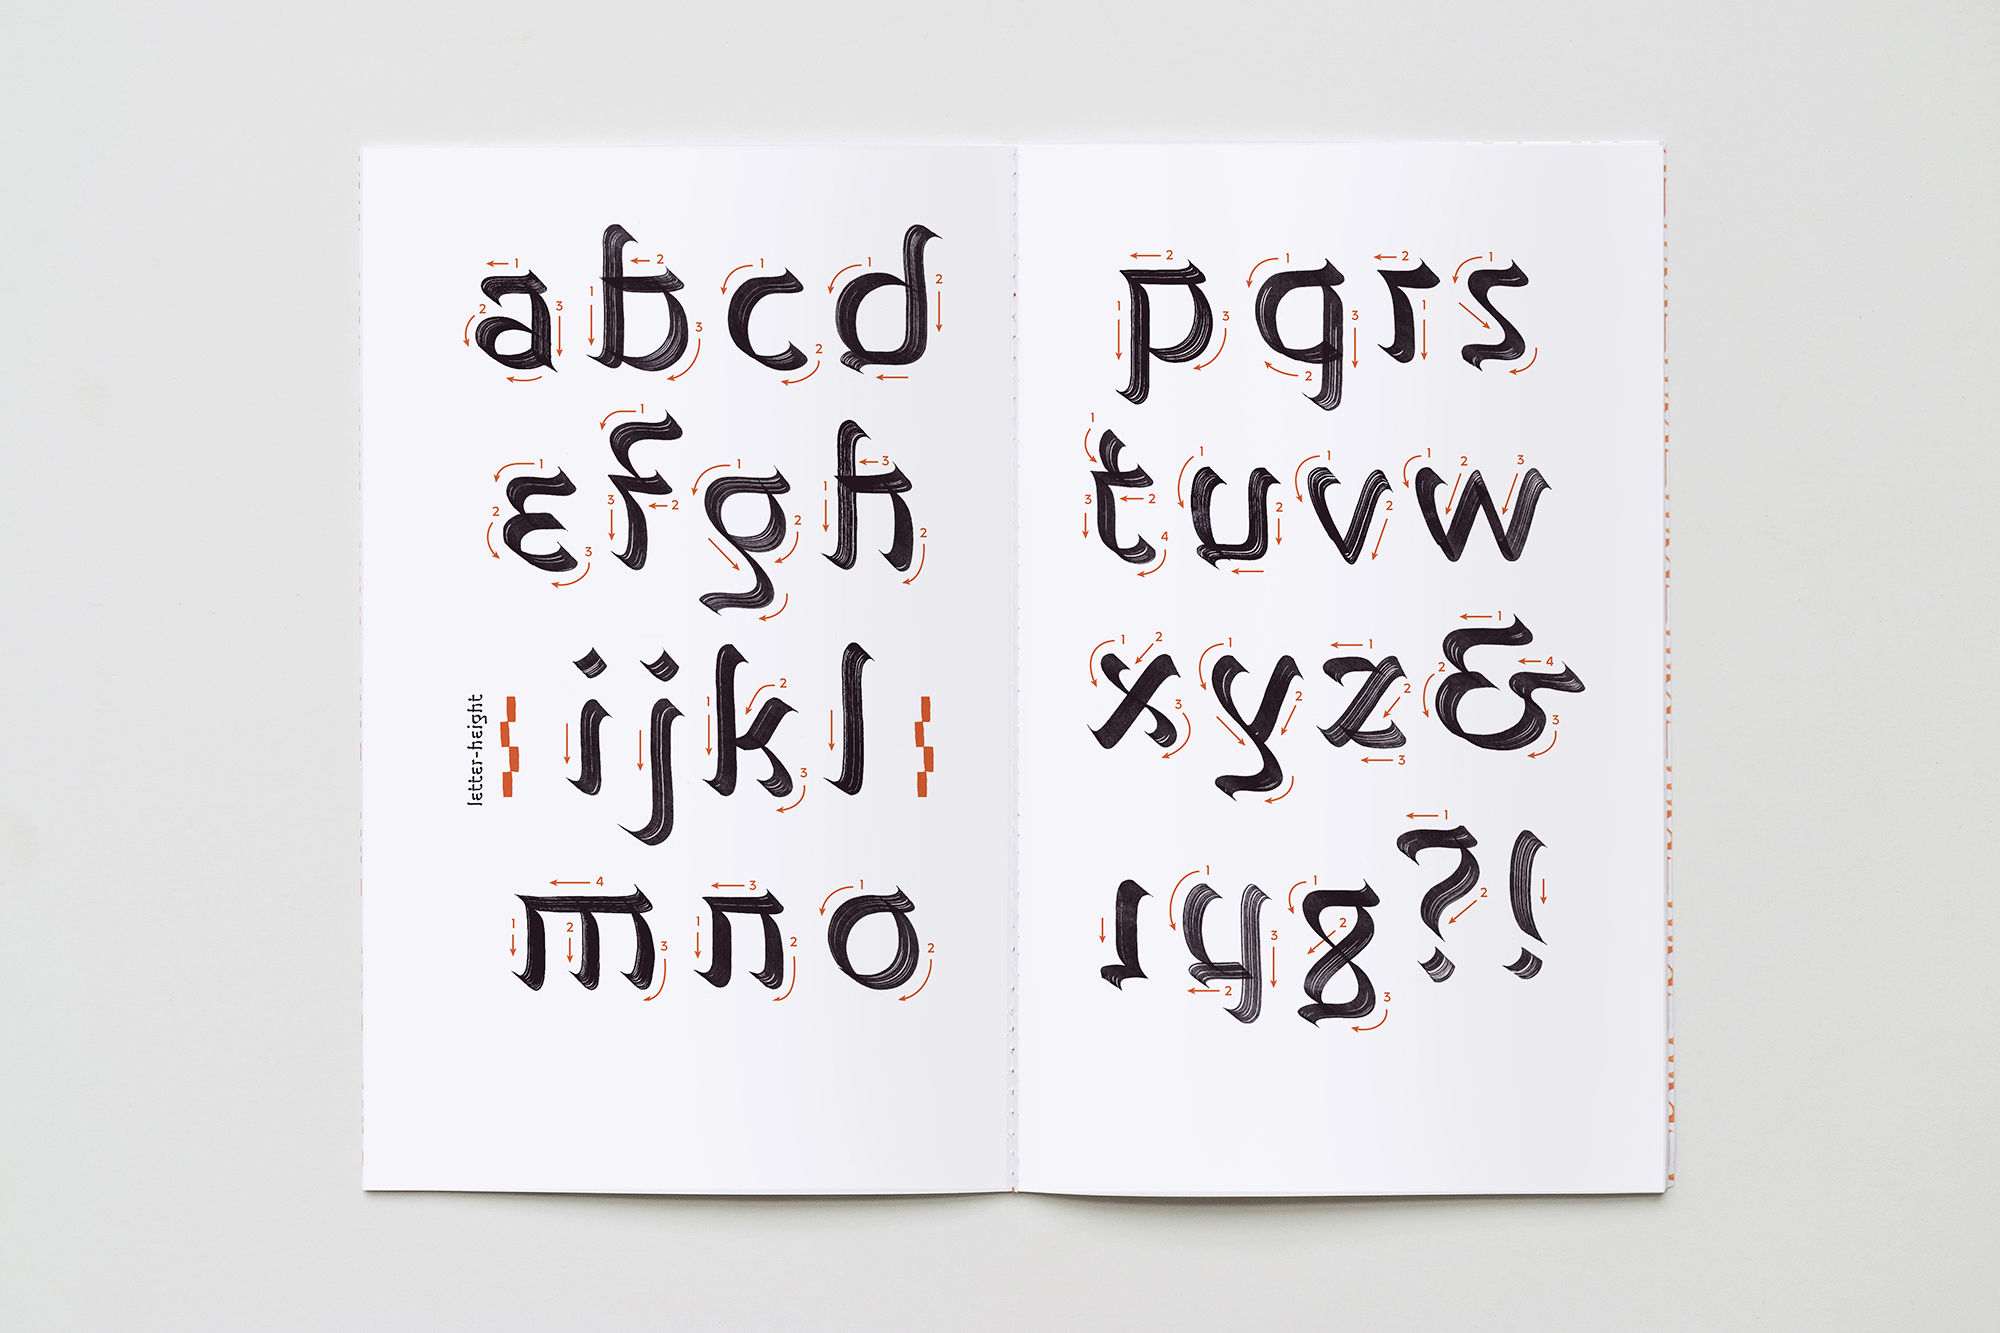 a b c d
ε f g h
letter-height
i j k l
m n o
p q r s
t u v w
x y z &
ı y g ? !